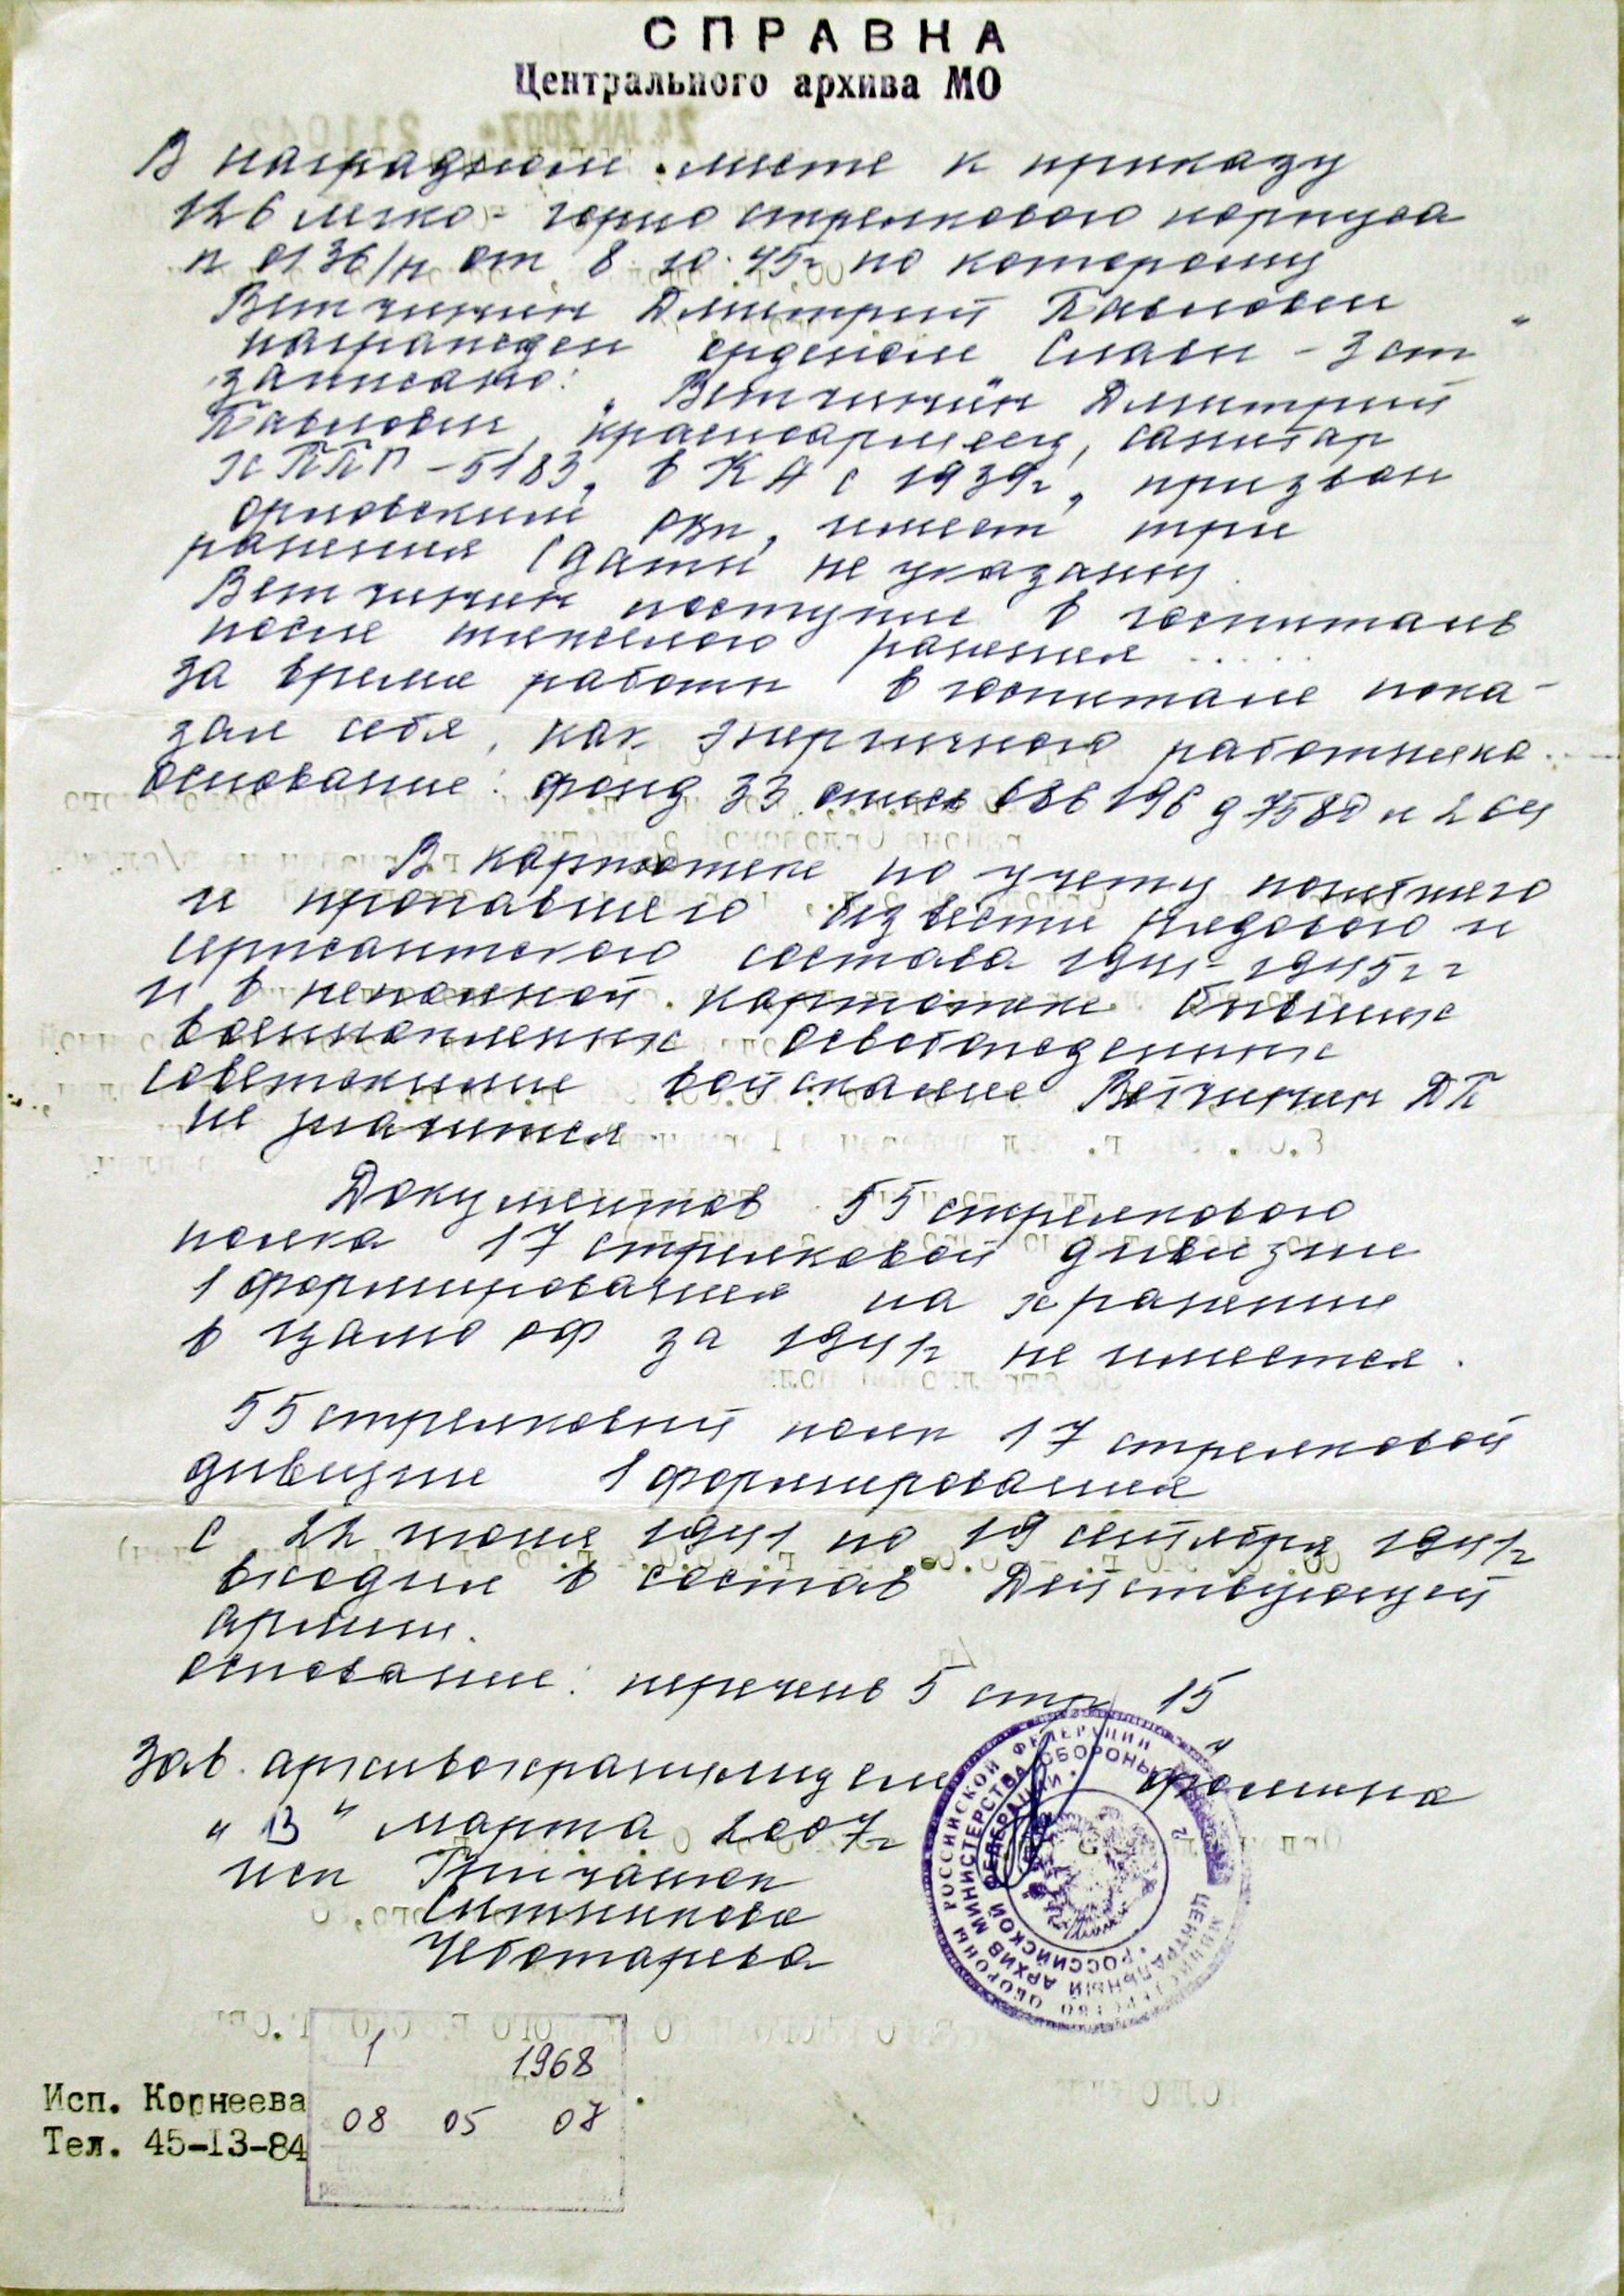 СПРАВКА
Центрального архива МО
В наградном листе к приказу
126 легко-горно стрелкового корпуса
н 0136/н от 8.10.45г по которому
Ветчинин Дмитрий Павлович
награжден орденом Славы - 3 ст"
записано: "Ветчинин Дмитрий
Павлович, красноармеец, санитар
ХППГ-5183, в КА с 1939г, призван
Орловский РВК, имеет три
ранения (даты не указаны
Ветчинин поступил в госпиталь
после тяжелого ранения .....
За время работы в госпитале пока-
зал себя, как энергичного работника...
Основание: фонд 33 опись 686196 д 7580 л 264
В картотеке по учету погибшего
и пропавшего без вести рядового и
сержантского состава 1941-1945гг
и в неполной картотеке бывших
военнопленных освобожденных
советскими войсками Ветчинин ДП
не значится
Документов 55 стрелкового
полка 17 стрелковой дивизии
1 формирования на хранении
в ЦАМО РФ за 1941г не имеется.
55 стрелковый полк 17 стрелковой
дивизии 1 формирования
с 22 июня 1941 по 19 сентября 1941г
входил в состав Действующей
армии.
Основание: перечень 5 стр 15
Зав. архивохранилищем Фомина
"13" марта 2007г
исп
Ситникова
Чеботарева
МИНИСТЕРСТВО ОБОРОНЫ РОССИЙСКОЙ ФЕДЕРАЦИИ
ЦЕНТРАЛЬНЫЙ АРХИВ МИНИСТЕРСТВА ОБОРОНЫ
РОССИЙСКОЙ ФЕДЕРАЦИИ
2
1 1968
08 05 07
Исп. Корнеева
Тел. 45-13-84